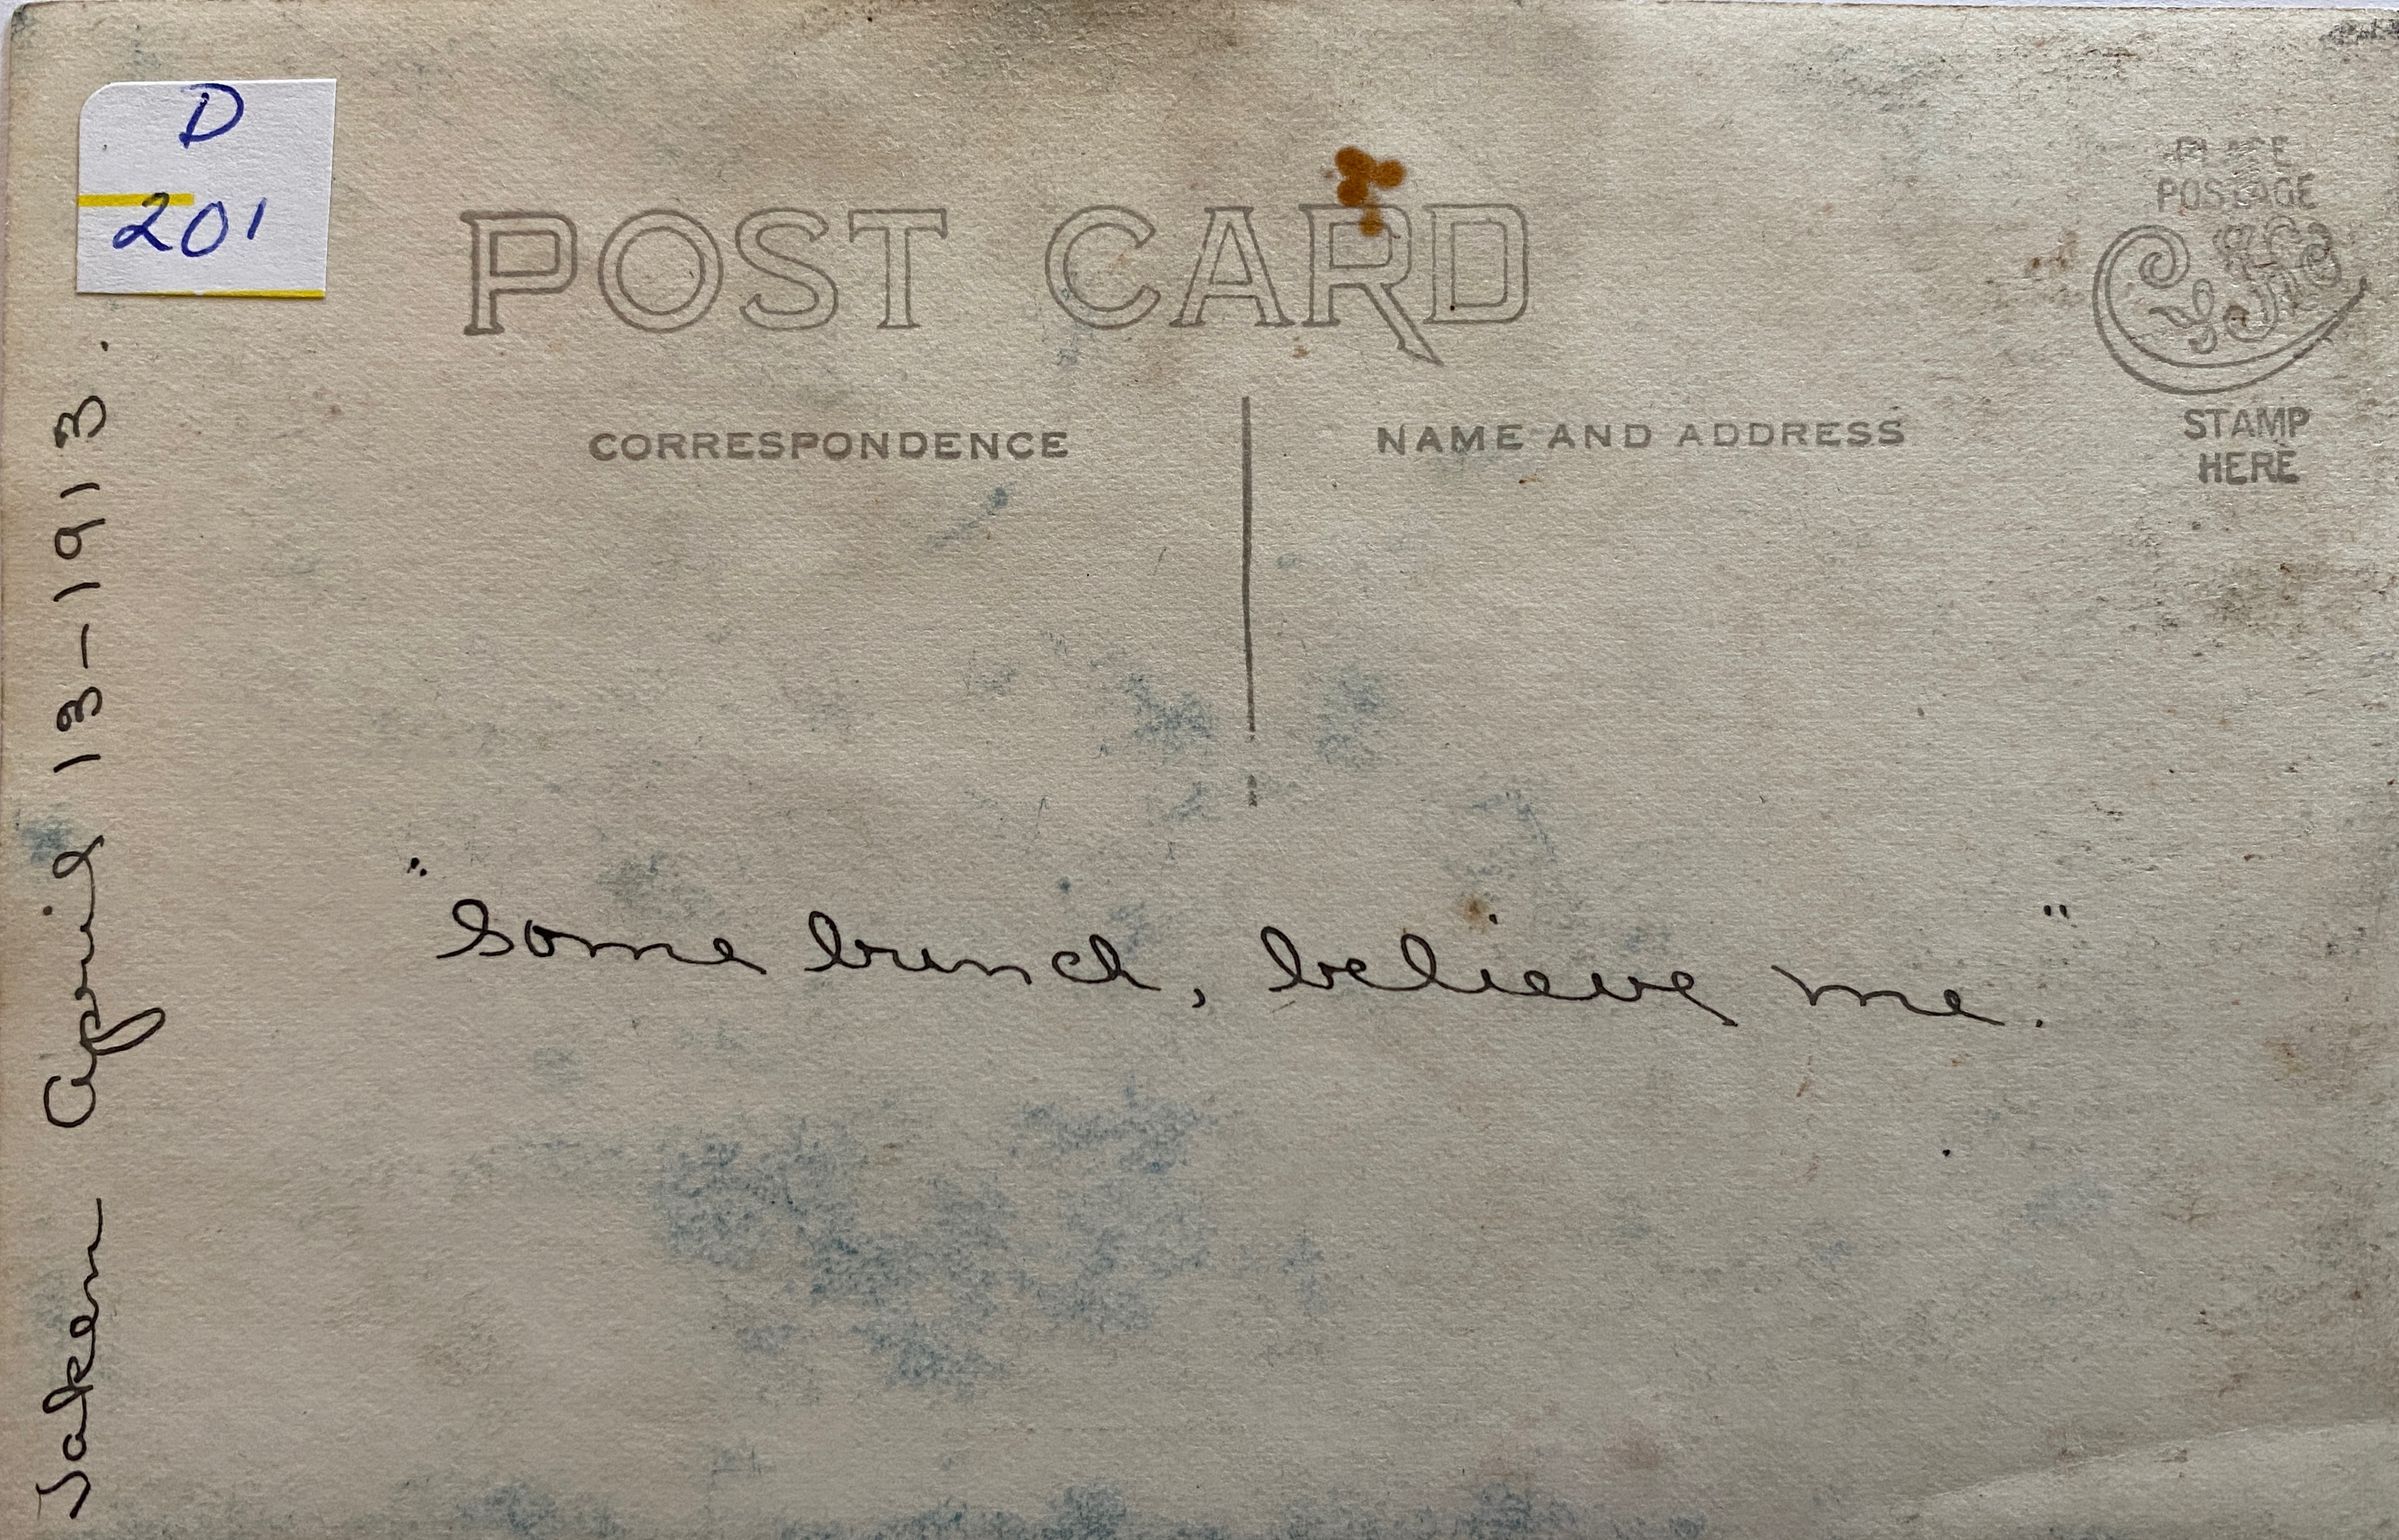 D
201
POST CARD
PLACE
POSTAGE
STAMP
HERE
CORRESPONDENCE
NAME AND ADDRESS
"Some bunch, believe me."
Taken April 13-1913.